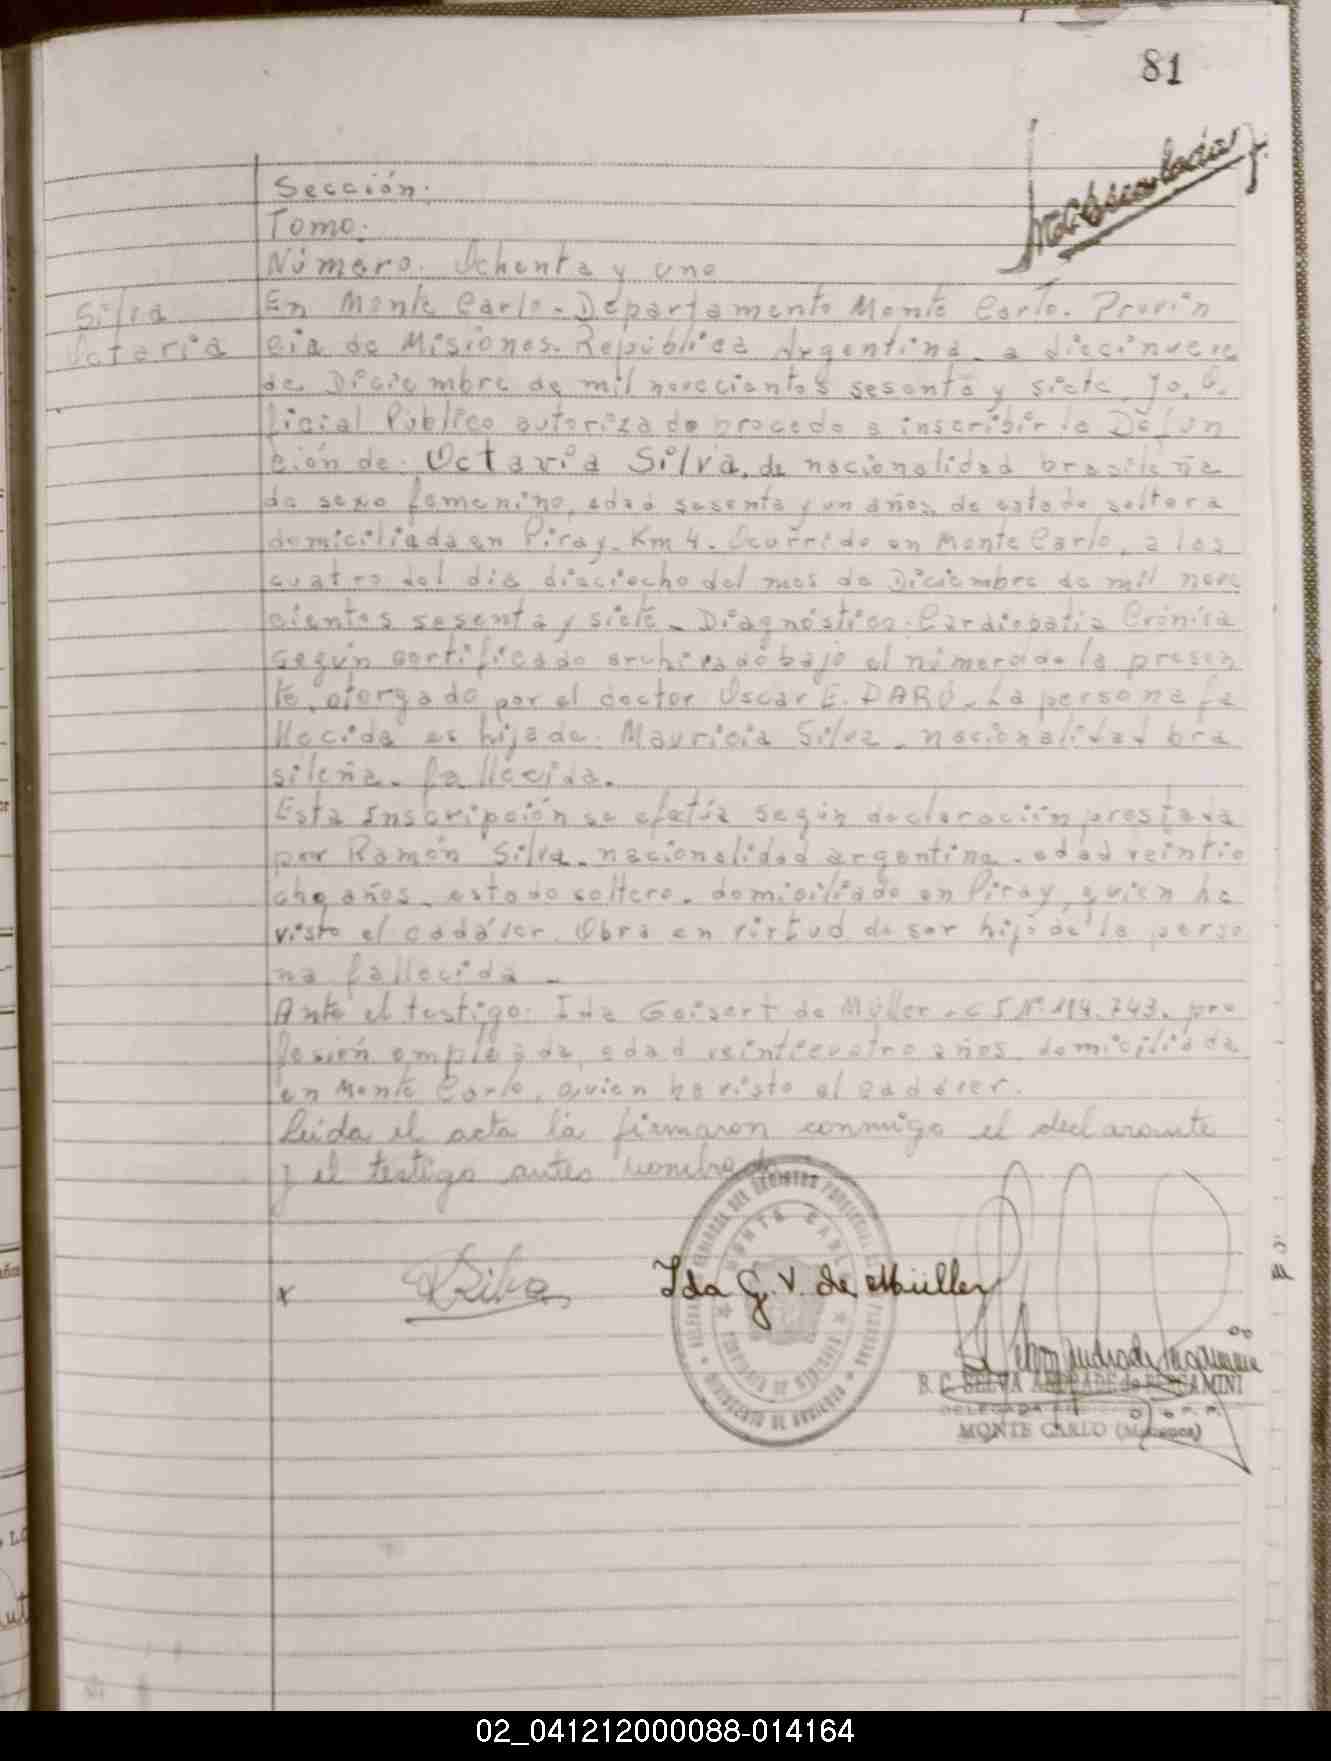 81
Sección.
Tomo.
Número. Ochenta y uno
Silva
Octavia
En Monte Carlo. Departamento Monte Carlo. Provin
cia de Misiones. República Argentina. a diecinueve
de Diciembre de mil novecientos sesenta y siete. Yo, O.
ficial Público autorizado procedo a inscribir la Defun
ción de. Octavia Silva, de nacionalidad brasileña
de sexo femenino, edad sesenta y un años, de estado soltera
domiciliada en Piray. Km 4. Ocurrido en Monte Carlo, a las
cuatro del día dieciocho del mes de Diciembre de mil nove
cientos sesenta y siete. Diagnóstico. Cardiopatia Crónica
según certificado archivado bajo el número de la presen
te, otorgado por el doctor Oscar E. DARÚ. La persona fa
llecida es hija de. Mauricia Silva. nacionalidad bra
sileña. fallecida.
Esta Inscripción se efetúa según declaración prestada
por Ramón Silva. nacionalidad argentina. edad veintio
cho años. estado soltero. domiciliado en Piray, quien ha
visto el cadáver. Obra en virtud de ser hijo de la perso
na fallecida.
Ante el testigo: Ida Geisert de Müller. C I Nº 114.743. pro
fesión empleada, edad veinticuatro años. domiciliada
en Monte Carlo, quien ha visto el cadáver.
Leída el acta la firmaron conmigo el declarante
y el testigo antes nombrado
x
Silva
Ida G. V. de Müller
MONTE CARLO
B. C. SELVA ANDRADE de BERGAMINI
DELEGADA
MONTE CARLO (Misiones)
02_041212000088-014164